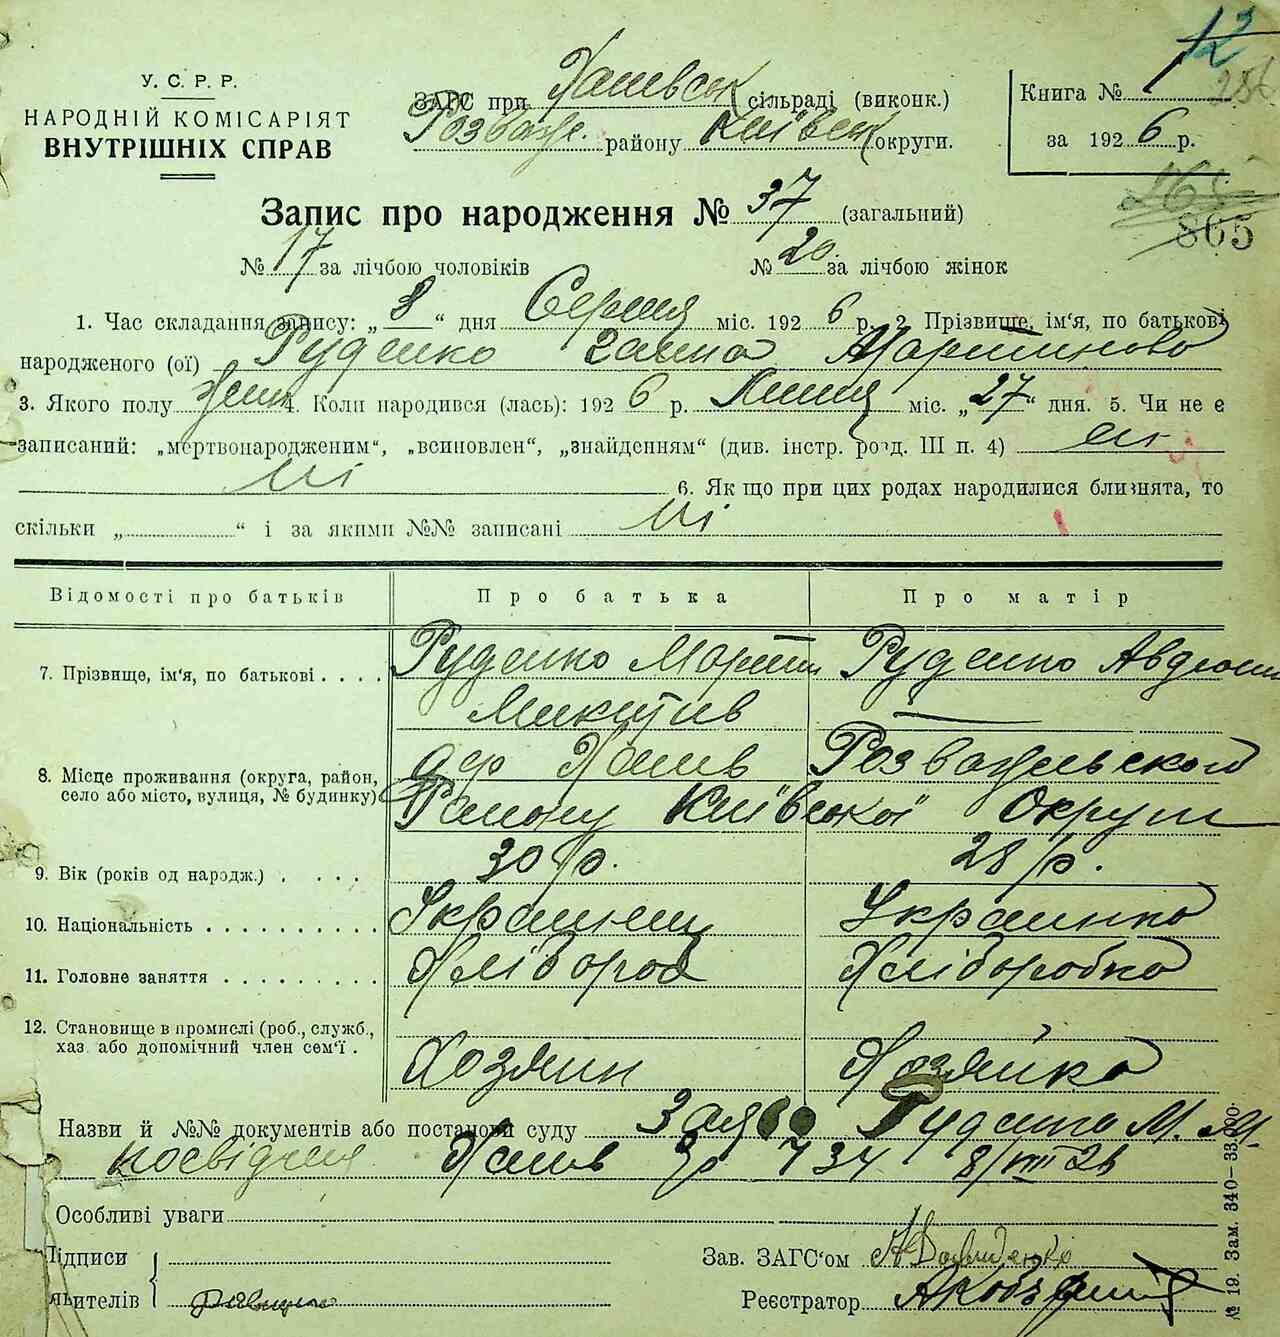 12
286
У. С. Р. Р.
НАРОДНІЙ КОМІСАРІЯТ
ВНУТРІШНІХ СПРАВ
ЗАГС при Ханівськ сільраді (виконк.)
Розваж. району Київськ округи.
Книга № 1
за 1926 р.
265
865
Запис про народження № 37 (загальний)
№ 17 за лічбою чоловіків № 20 за лічбою жінок
1. Час складання запису: „ 8 “ дня Серпня міс. 1926 р. 2. Прізвище, ім‘я, по батькові
народженого (ої) Руденко Ганна Мартинова
3. Якого полу жін 4. Коли народився (лась): 1926 р. Липня міс. „27“ дня. 5. Чи не є
записаний: „мертвонародженим“, „всиновлен“, „знайденням“ (див. інстр. розд. III п. 4) ні
ні 6. Як що при цих родах народилися близнята, то
скільки „ “ і за якими №№ записані ні
Відомості про батьків Про батька Про матір
7. Прізвище, ім‘я, по батькові . . . . Руденко Мартин Руденко
Микитив
8. Місце проживання (округа, район, село або місто, вулиця, № будинку) Ханів Розважевського
Району Київської Округи
9. Вік (років од народж.) . . . . 30 р. 28 р.
10. Національність . . . . . . . . . . Українец Українка
11. Головне заняття . . . . . . . . . Хлібороб Хліборобка
12. Становище в промислі (роб., служб., хаз. або допомічний член сем‘ї . Хозяин Хозяйка
Назви й №№ документів або постанови суду Заява Руденко М. М.
посвідчня Ханів 734 8/VIII 26
Особливі уваги
Підписи
явителів
Зав. ЗАГС‘ом Давиденко
Реєстратор
№ 19. Зам. 340–33.000.